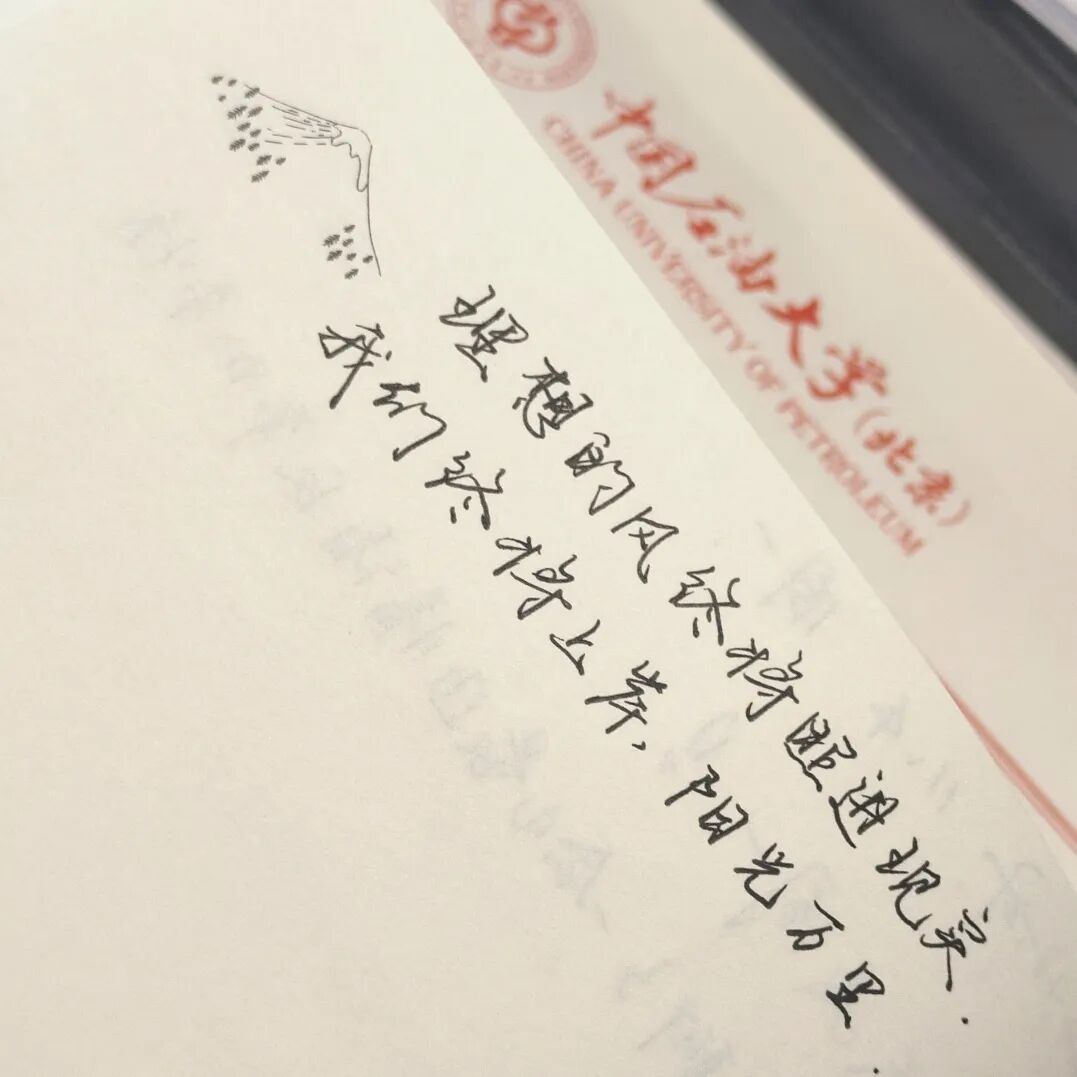 中国石油大学(北京)
CHINA UNIVERSITY OF PETROLEUM
理想的风终将照进现实.
我们终将上岸,阳光万里.